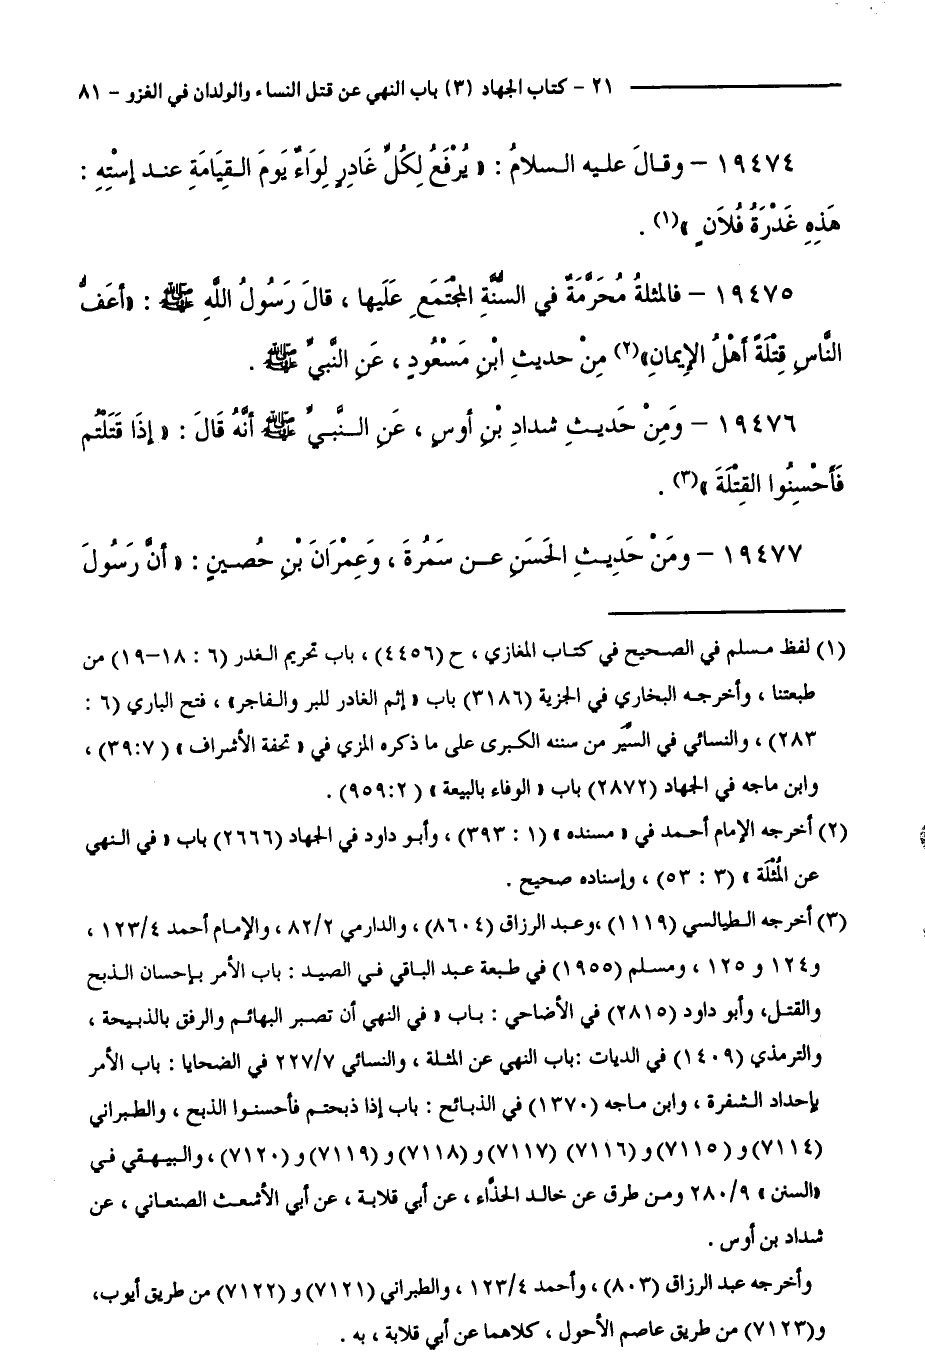 ٢١ - كتاب الجهاد (٣) باب النهي عن قتل النساء والولدان في الغزو - ٨١
١٩٤٧٤ - وقالَ عليه السلامُ : « يُرْفَعُ لِكُلِّ غَادِرٍ لِوَاءٌ يَومَ القِيَامَةِ عند إستْهِ :
هَذِهِ غَدْرَةُ فُلاَنٍ »(١) .
١٩٤٧٥ - فالمثلةُ مُحَرَّمَةٌ في السنَّةِ المجْتَمَعِ عَلَيها ، قالَ رَسُولُ اللَّهِ ﷺ : «أعَفُّ
النَّاسِ قِتْلَةً أهْلُ الإيمانِ»(٢) مِنْ حديثِ ابْنِ مَسْعُودٍ ، عَنِ النَّبيِّ ﷺ .
١٩٤٧٦ - وَمِنْ حَديثِ شدادِ بْنِ أوسٍ ، عَنِ النَّبيِّ ﷺ أنَّهُ قَالَ : « إذَا قَتَلْتُم
فَأَحْسِنُوا القِتْلَةَ »(٣) .
١٩٤٧٧ - ومَنْ حَدِيثِ الحَسَنِ عن سَمُرةَ ، وَعِمْرَانَ بْنِ حُصينٍ : « أنَّ رَسُولَ
(١) لفظ مسلم في الصحيح في كتاب المغازي ، ح (٤٤٥٦) ، باب تحريم الغدر (٦ : ١٨-١٩) من
طبعتنا ، وأخرجه البخاري في الجزية (٣١٨٦) باب « إثم الغادر للبر والفاجر» ، فتح الباري (٦ :
٢٨٣) ، والنسائي في السيَّر من سننه الكبرى على ما ذكره المزي في « تحفة الأشراف » (٣٩:٧) ،
وابن ماجه في الجهاد (٢٨٧٢) باب « الوفاء بالبيعة » (٩٥٩:٢) .
(٢) أخرجه الإمام أحمد في « مسنده » (١ : ٣٩٣) ، وأبو داود في الجهاد (٢٦٦٦) باب « في النهي
عن المُثْلَة » (٣ : ٥٣) ، وإسناده صحيح .
(٣) أخرجه الطيالسي (١١١٩) ،وعبد الرزاق (٨٦٠٤) ، والدارمي ٨٢/٢ ، والإمام أحمد ١٢٣/٤ ،
و١٢٤ و ١٢٥ ، ومسلم (١٩٥٥) في طبعة عبد الباقي في الصيد : باب الأمر بإحسان الذبح
والقتل، وأبو داود (٢٨١٥) في الأضاحي : باب « في النهي أن تصبر البهائم والرفق بالذبيحة ،
والترمذي (١٤٠٩) في الديات :باب النهي عن المثلة ، والنسائي ٢٢٧/٧ في الضحايا : باب الأمر
بإحداد الشفرة ، وابن ماجه (١٣٧٠) في الذبائح : باب إذا ذبحتم فأحسنوا الذبح ، والطبراني
(٧١١٤) و ( ٧١١٥) و (٧١١٦) (٧١١٧) و (٧١١٨) و (٧١١٩) و (٧١٢٠) ، والبيهقي في
«السنن » ٢٨٠/٩ ومن طرق عن خالد الحذَّاء ، عن أبي قلابة ، عن أبي الأشعث الصنعاني ، عن
شداد بن أوس .
وأخرجه عبد الرزاق (٨٠٣) ، وأحمد ١٢٣/٤ ، والطبراني (٧١٢١) و (٧١٢٢) من طريق أيوب،
و(٧١٢٣) من طريق عاصم الأحول ، كلاهما عن أبي قلابة ، به .